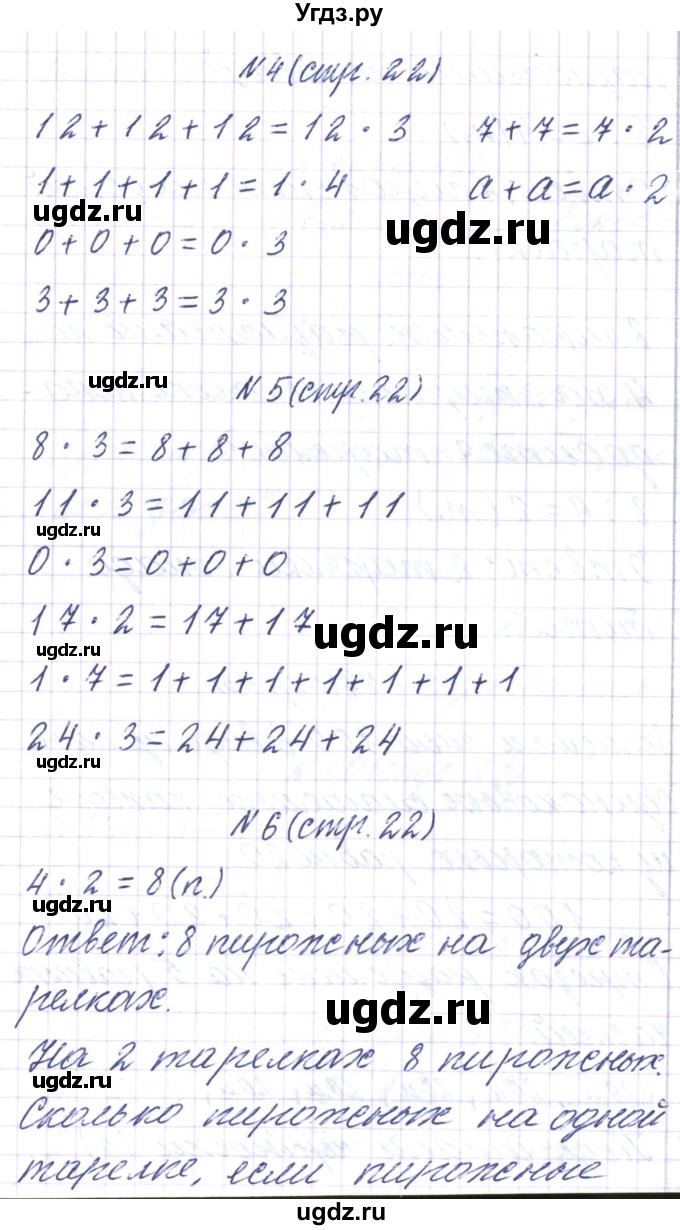 Угдз.ру
№4 (стр. 22)
12+12+12=12·3 7+7=7·2
1+1+1+1=1·4 a+a=a·2
ugdz.ru ugdz.ru
0+0+0=0·3
3+3+3=3·3
ugdz.ru №5 (стр. 22)
8·3=8+8+8
11·3=11+11+11
ugdz.ru
0·3=0+0+0
17·2=17+17 ugdz.ru
ugdz.ru
1·7=1+1+1+1+1+1+1
24·3=24+24+24
ugdz.ru
№6 (стр. 22)
4·2=8(п.)
ugdz.ru
Ответ: 8 пирожных на двух та-
релках. ugdz.ru
На 2 тарелках 8 пирожных.
ugdz.ru
Сколько пирожных на одной
тарелке, если пирожные
ugdz.ru ugdz.ru